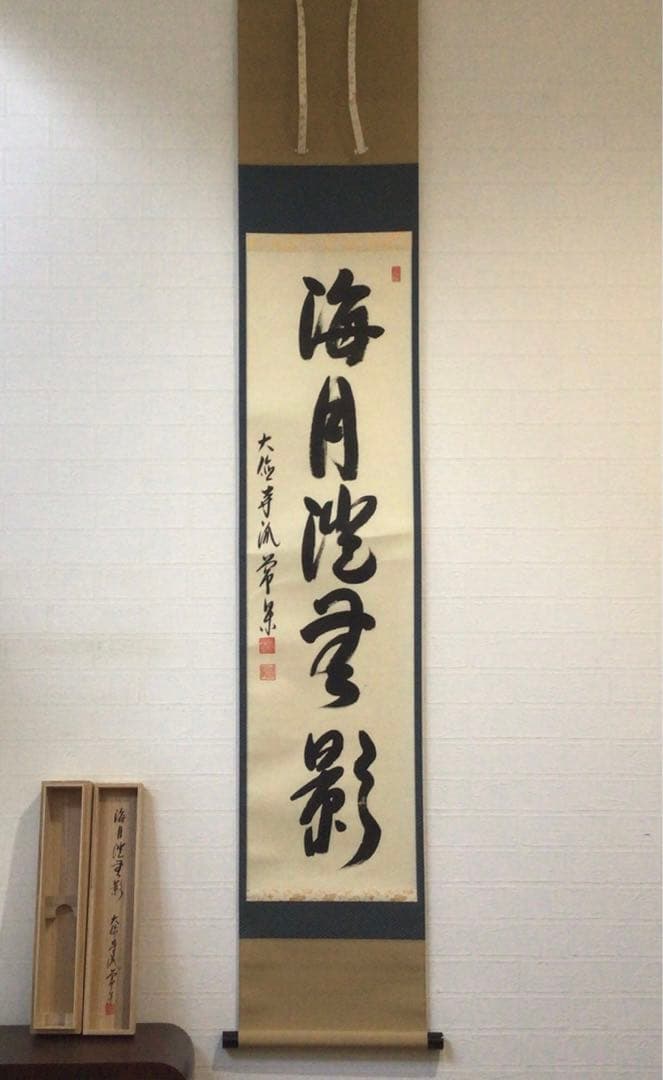 海月澄無影
大徳寺派
海月澄無影